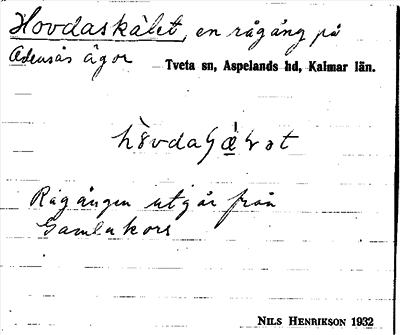 Hovdaskälet, en rågång på
Adensås ägor Tveta sn, Aspelands hd, Kalmar län.
Rågången utgår från
Gamlakors
NILS HENRIKSON 1932